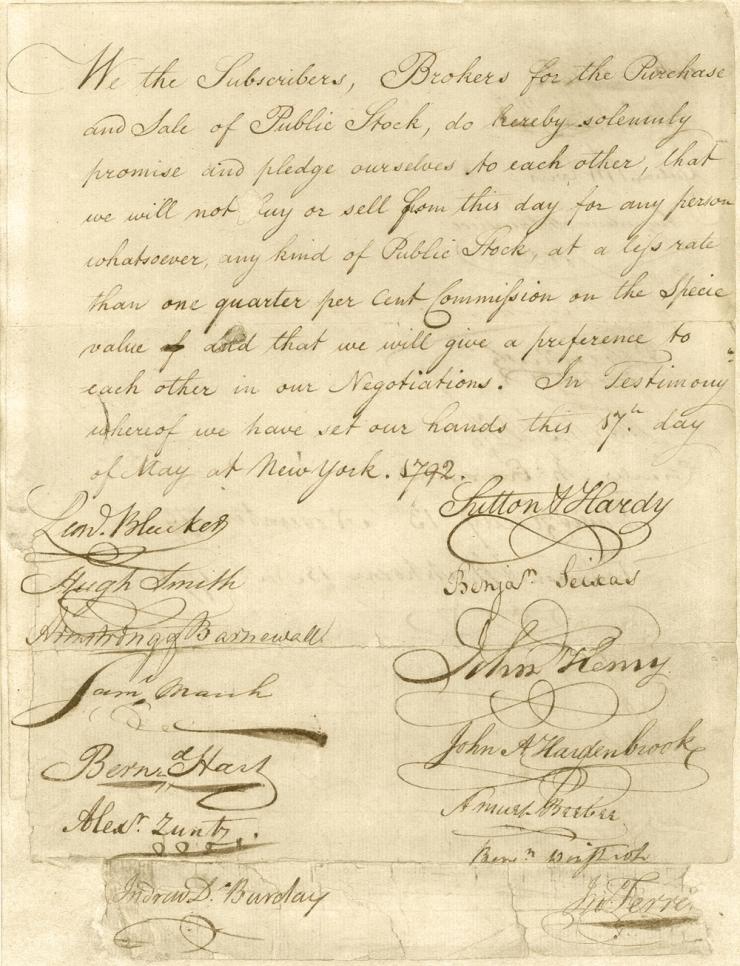 We the Subscribers, Brokers for the Purchase
and Sale of Public Stock, do hereby solemnly
promise and pledge ourselves to each other, that
we will not buy or sell from this day for any person
whatsoever, any kind of Public Stock, at a less rate
than one quarter per Cent Commission on the Specie
value of and that we will give a preference to
each other in our Negotiations. In Testimony
whereof we have set our hands this 17th day
of May at New York. 1792.
Leod. Bleecker
Hugh Smith
Armstrong & Barnewall
Saml. March
Bernd. Hart
Alexr. Zuntz.
Andrew D. Barclay
Sutton & Hardy
Benjan. Seixas
John Henry
John A Hardenbrook
Amurt Beebee
Benn.
Jno. Ferrers